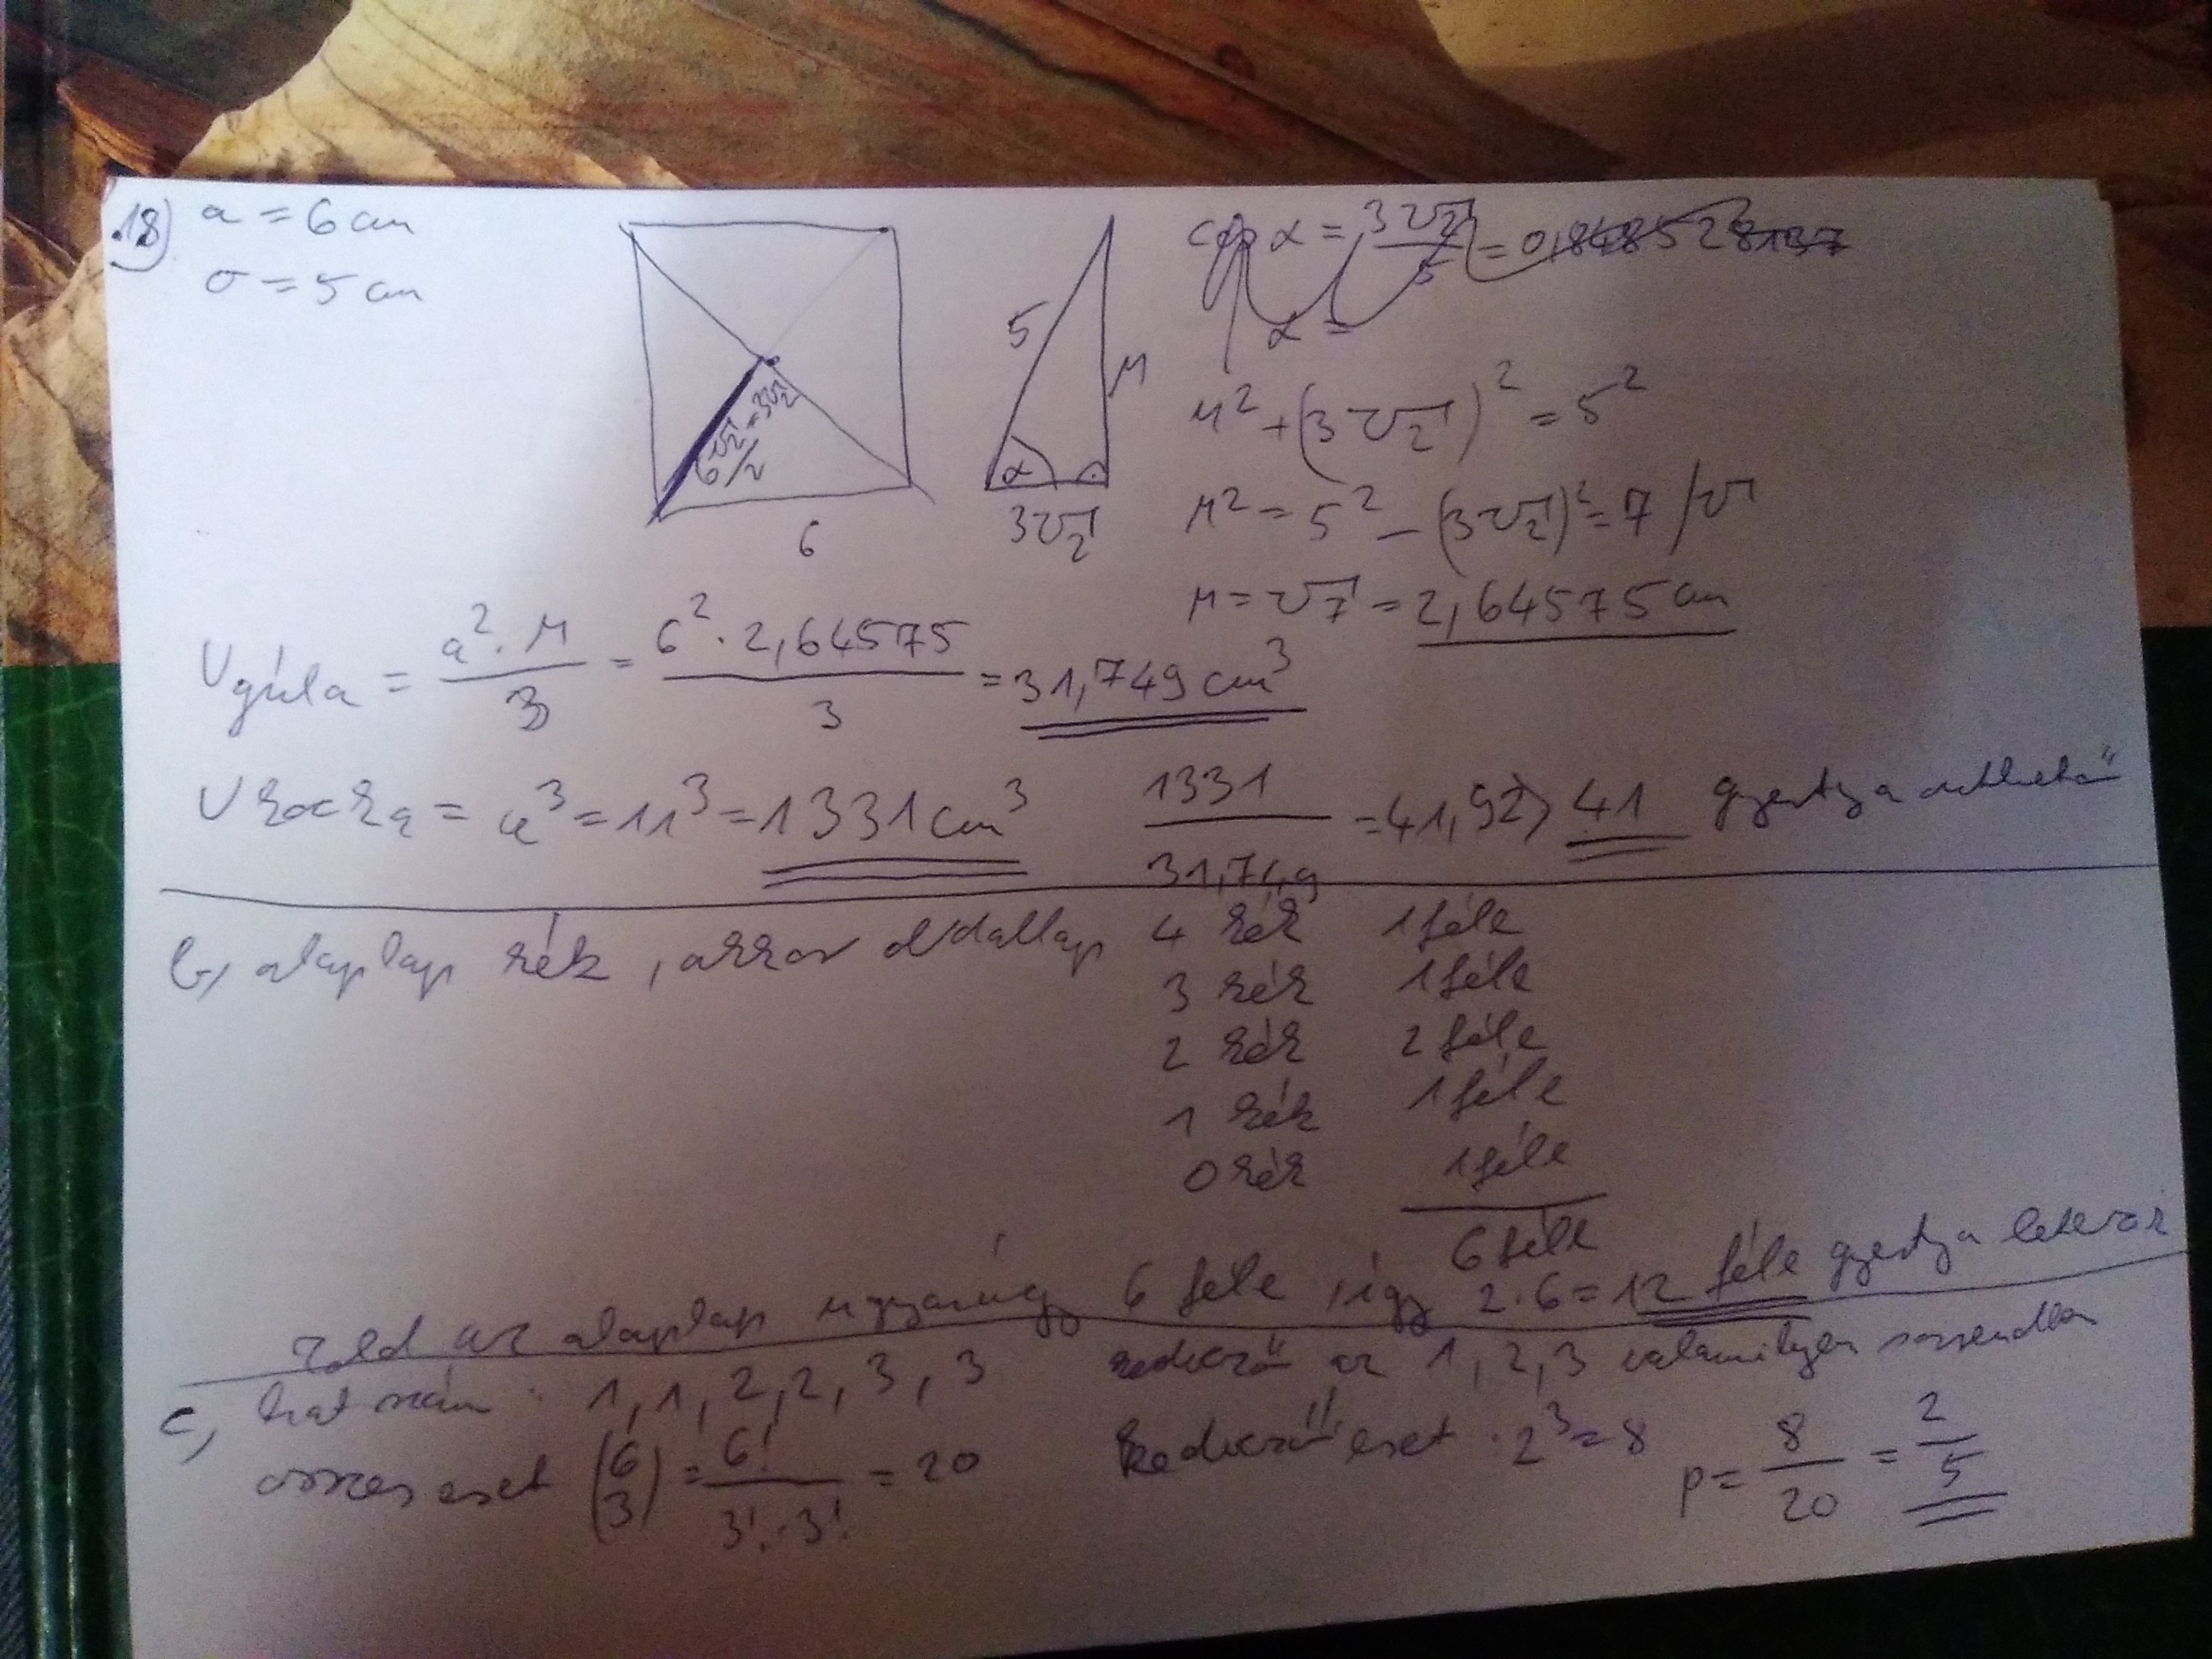 18) a = 6 cm
σ = 5 cm
6√2/2 = 3√2
6
5
M
α
3√2
cos α = 3√2/5 = 0,848528137
α =
M² + (3√2)² = 5²
M² = 5² - (3√2)² = 7 /√
M = √7 = 2,64575 cm
Vgúla = a²·M/3 = 6²·2,64575/3 = 31,749 cm³
Vkocka = a³ = 11³ = 1331 cm³ 1331/31,749 = 41,92 > 41 gyertya önthető
b, alaplap kék, akkor oldallap 4 kék 1 féle
3 kék 1 féle
2 kék 2 féle
1 kék 1 féle
0 kék 1 féle
6 féle
zöld az alaplap ugyanúgy 6 féle, így 2·6 = 12 féle gyertya
c, hat szám: 1, 1, 2, 2, 3, 3 kedvező az 1, 2, 3 valamilyen sorrendben
összes eset (6 3) = 6!/3!·3! = 20 kedvező eset: 2³ = 8 p = 8/20 = 2/5